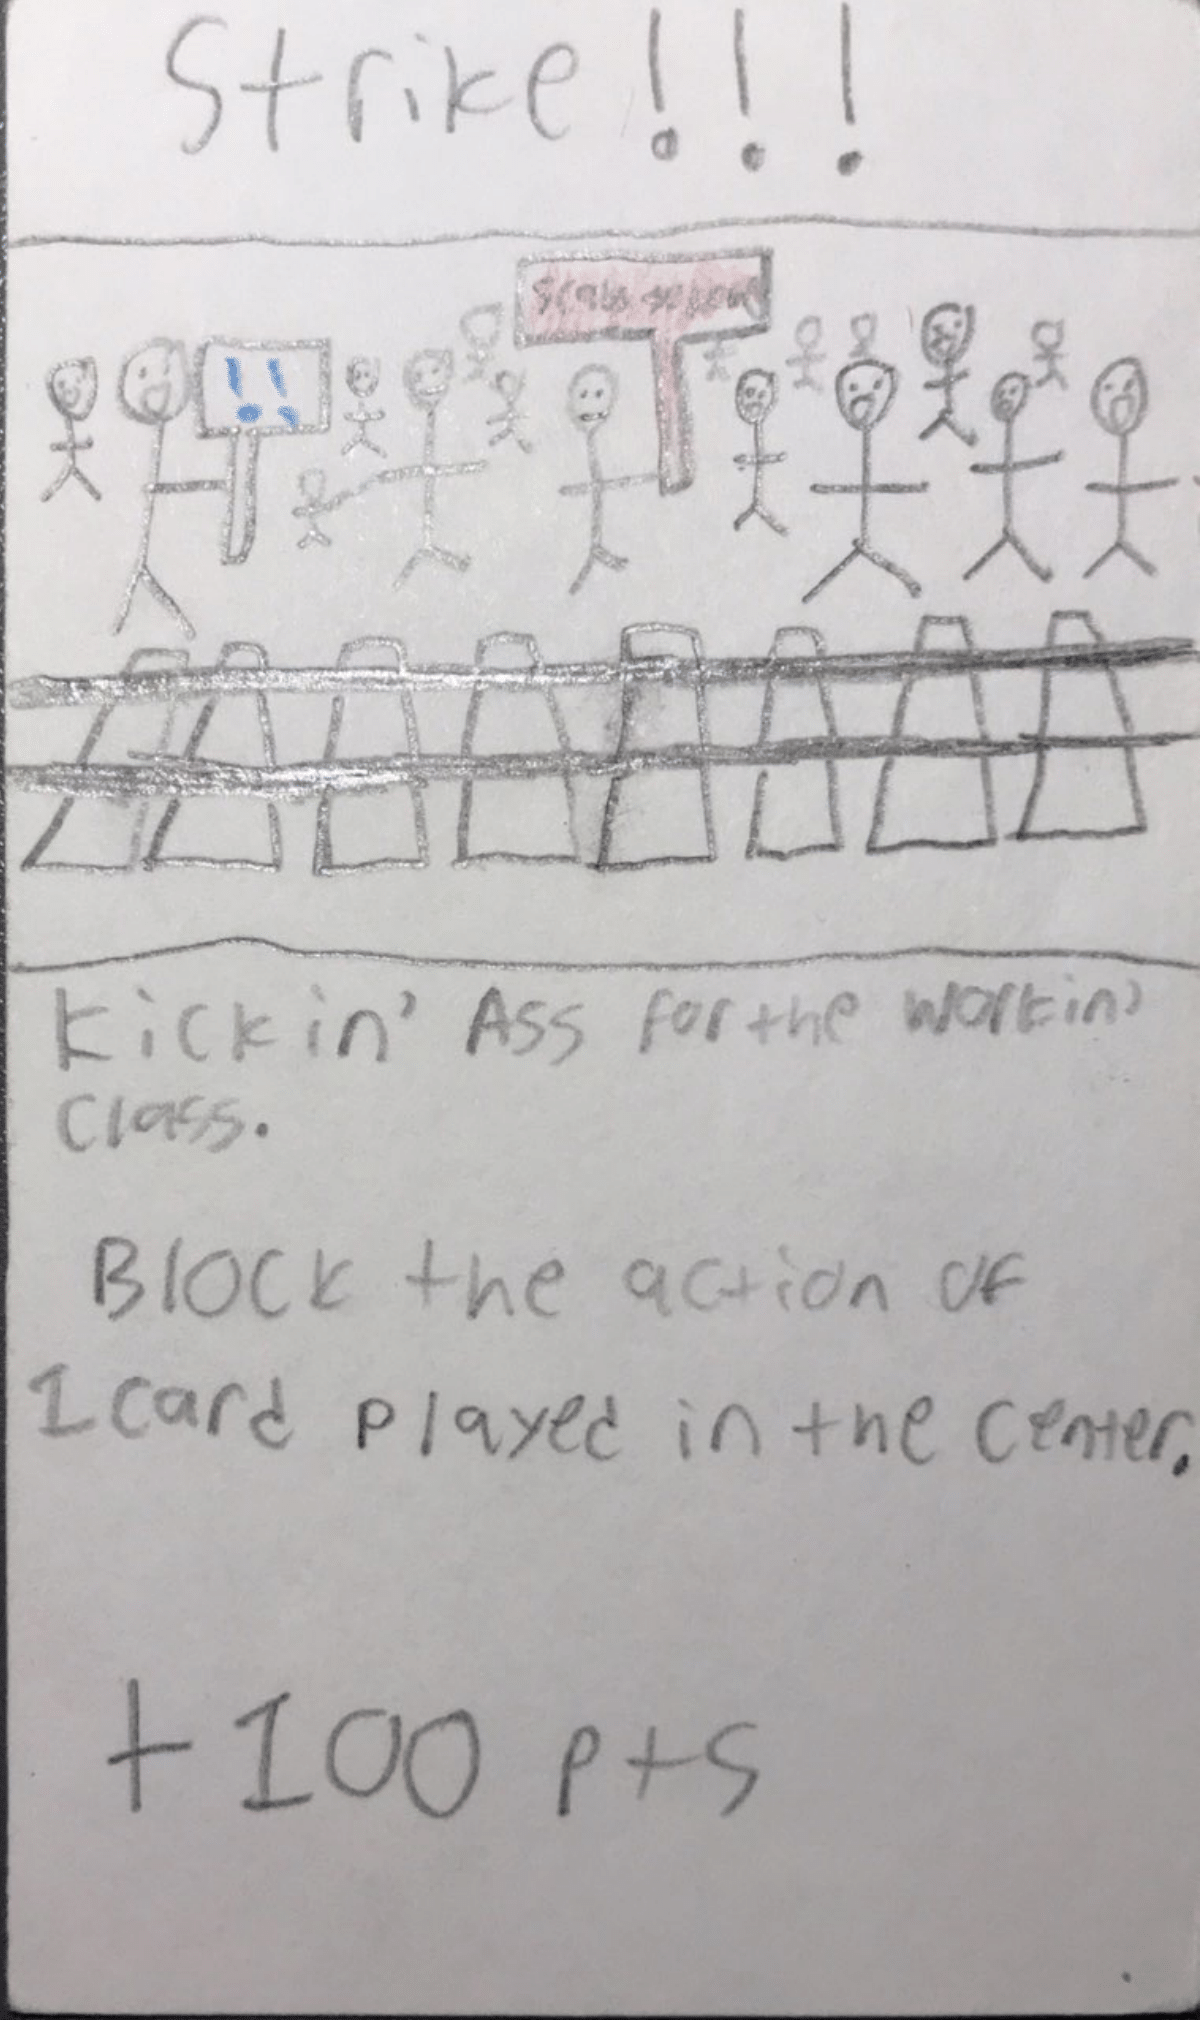 Strike!!!
!!
Kickin' Ass for the workin'
Class.
Block the action of
1 card played in the center.
+100 pts